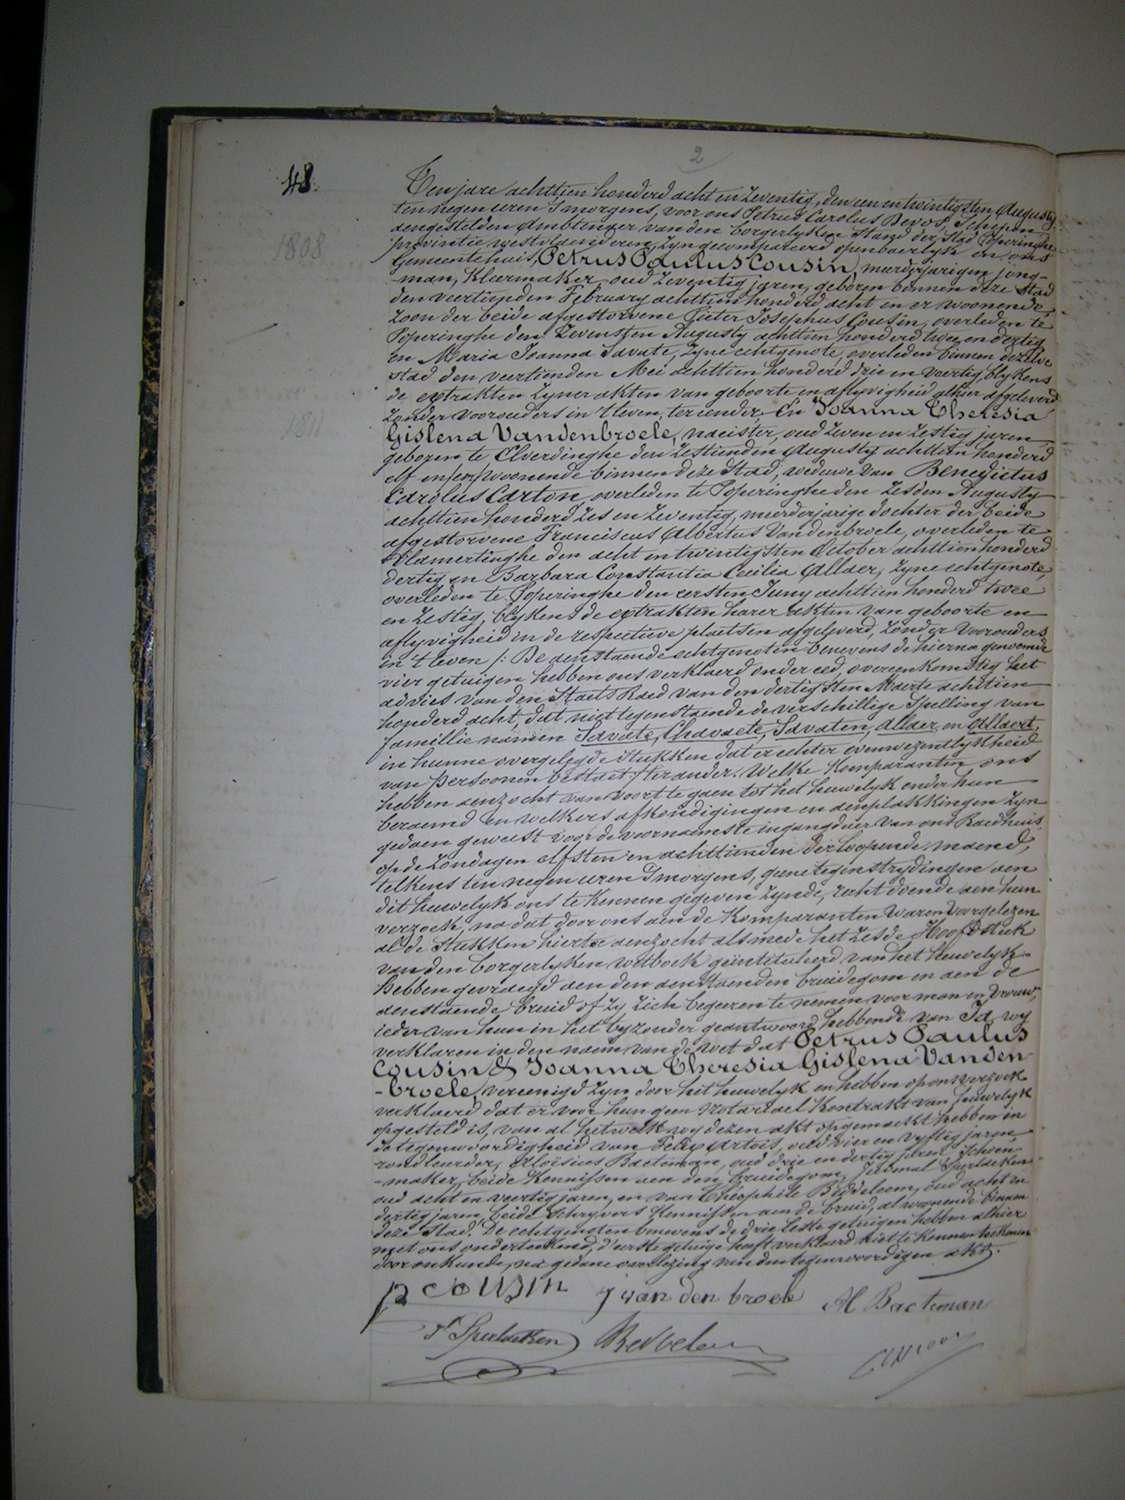 2
48.
Ten jare achttien honderd acht en zeventig, den een en twintigsten Augusty
ten negen uren s'morgens, voor ons Petrus Carolus Devos, Schepen
aengestelden Ambtenaer van den borgerlyken Stand der Stad Poperinghe
provintie westvlaenderen, zyn gecompareerd openbaerlyk in ons
1808
Gemeentehuis, Petrus Paulus Cousin, meerderjarigen jong-
-man, Kleermaker, oud zeventig jaren, geboren binnen deze Stad
den veertienden February achttien honderd acht en er woonende,
zoon der beide afgestorvene Pieter Josephus Cousin, overleden te
Poperinghe den zevensten Augusty achttien honderd twee en dertig
en Maria Joanna Savate, zyne echtgenote, overleden binnen dezelve
stad den veertienden Mei achttien honderd drie en veertig, blykens
de extrakten zyner akten van geboorte en aflyvigheid alhier afgeleverd
zonder voorouders in 't leven, ter eender. En Joanna Theresia
1811
Gislena Vandenbroele, naeister, oud zeven en zestig jaren,
geboren te Elverdinghe den zestienden Augusty achttien honderd
elf en er woonende binnen deze Stad, weduwe van Benedictus
Carolus Carton, overleden te Poperinghe den zesden Augusty
achttien honderd zes en zeventig, meerderjarige dochter der beide
afgestorvene Franciscus Albertus Vandenbroele, overleden te
Vlamertinghe den acht en twintigsten October achttien honderd
dertig en Barbara Constantia Cecilia Allaer, zyne echtgenote,
overleden te Poperinghe den eersten Juny achttien honderd twee
en zestig, blykens de extrakten harer akten van geboorte en
aflyvigheid in de respectieve plaetsen afgeleverd, zonder voorouders
in 't leven /: De aenstaende echtgenoten benevens de hierna genoemde
vier getuigen hebben ons verklaerd onder eed, overeenkomstig het
advies van den Staets Raed van den dertigsten Maerte achttien
honderd acht, dat niettegenstaende de verschillige Spelling van
famillie namen Savate, Chavaete, Savaten, Allaer en Allaert,
in hunne overgelegde Stukken dat er echter eenwezentlykheid
van persoonen bestaet, ter ander. Welke Komparanten ons
hebben aenzocht van voort te gaen tot het huwelyk onder hun
beraemd en welkers afkondigingen en aenplakkingen zyn
gedaen geweest voor de voornaemste ingangdeur van ons Raedhuis
op de Zondagen elfsten en achttienden der loopende maend,
telkens ten negen uren s'morgens, geene tegenstrydingen aen
dit huwelyk ons te kennen gegeven zynde, recht doende aen hun
verzoek, na dat door ons aen de Komparanten waren voorgelezen
al de Stukken hiertoe aenzocht alsmede het zesde Hoofdstuk
van den borgerlyken wetboek geïntituleerd van het Huwelyk
Hebben gevraegd aen den aenstaenden bruidegom en aen de
aenstaende bruid of zy zich begeeren te nemen voor man en vrouw,
ieder van hun in het byzonder geantwoord hebbende van Ja, wy
verklaren in den naem van de wet dat Petrus Paulus
Cousin & Joanna Theresia Gislena Vanden-
-broele, vereenigd zyn door het huwelyk en hebben op ons verzoek
verklaerd dat er voor hun geen Notariael Kontrakt van huwelyk
opgesteld is, van al hetwelk wy dezen akt opgemaekt hebben in
de tegenwoordigheid van Felix Artois, oud vier en vyftig jaren,
rondleurder, Aloïsius Baeteman, oud drie en dertig jaren, schoen-
-maker, beide Kennissen aen den bruidegom,
oud acht en veertig jaren, en van Théophile
dertig jaren, beide Schryvers Kennissen aen de bruid, al woonende binnen
deze Stad. De echtgenoten benevens de drie leste getuigen hebben alhier
met ons onderteekend, d'eerste getuige heeft verklaerd niet te konnen teekenen
door onkunde, na gedane voorlezing van den tegenwoordigen akt.
p cousin j van den broele Al Baeteman